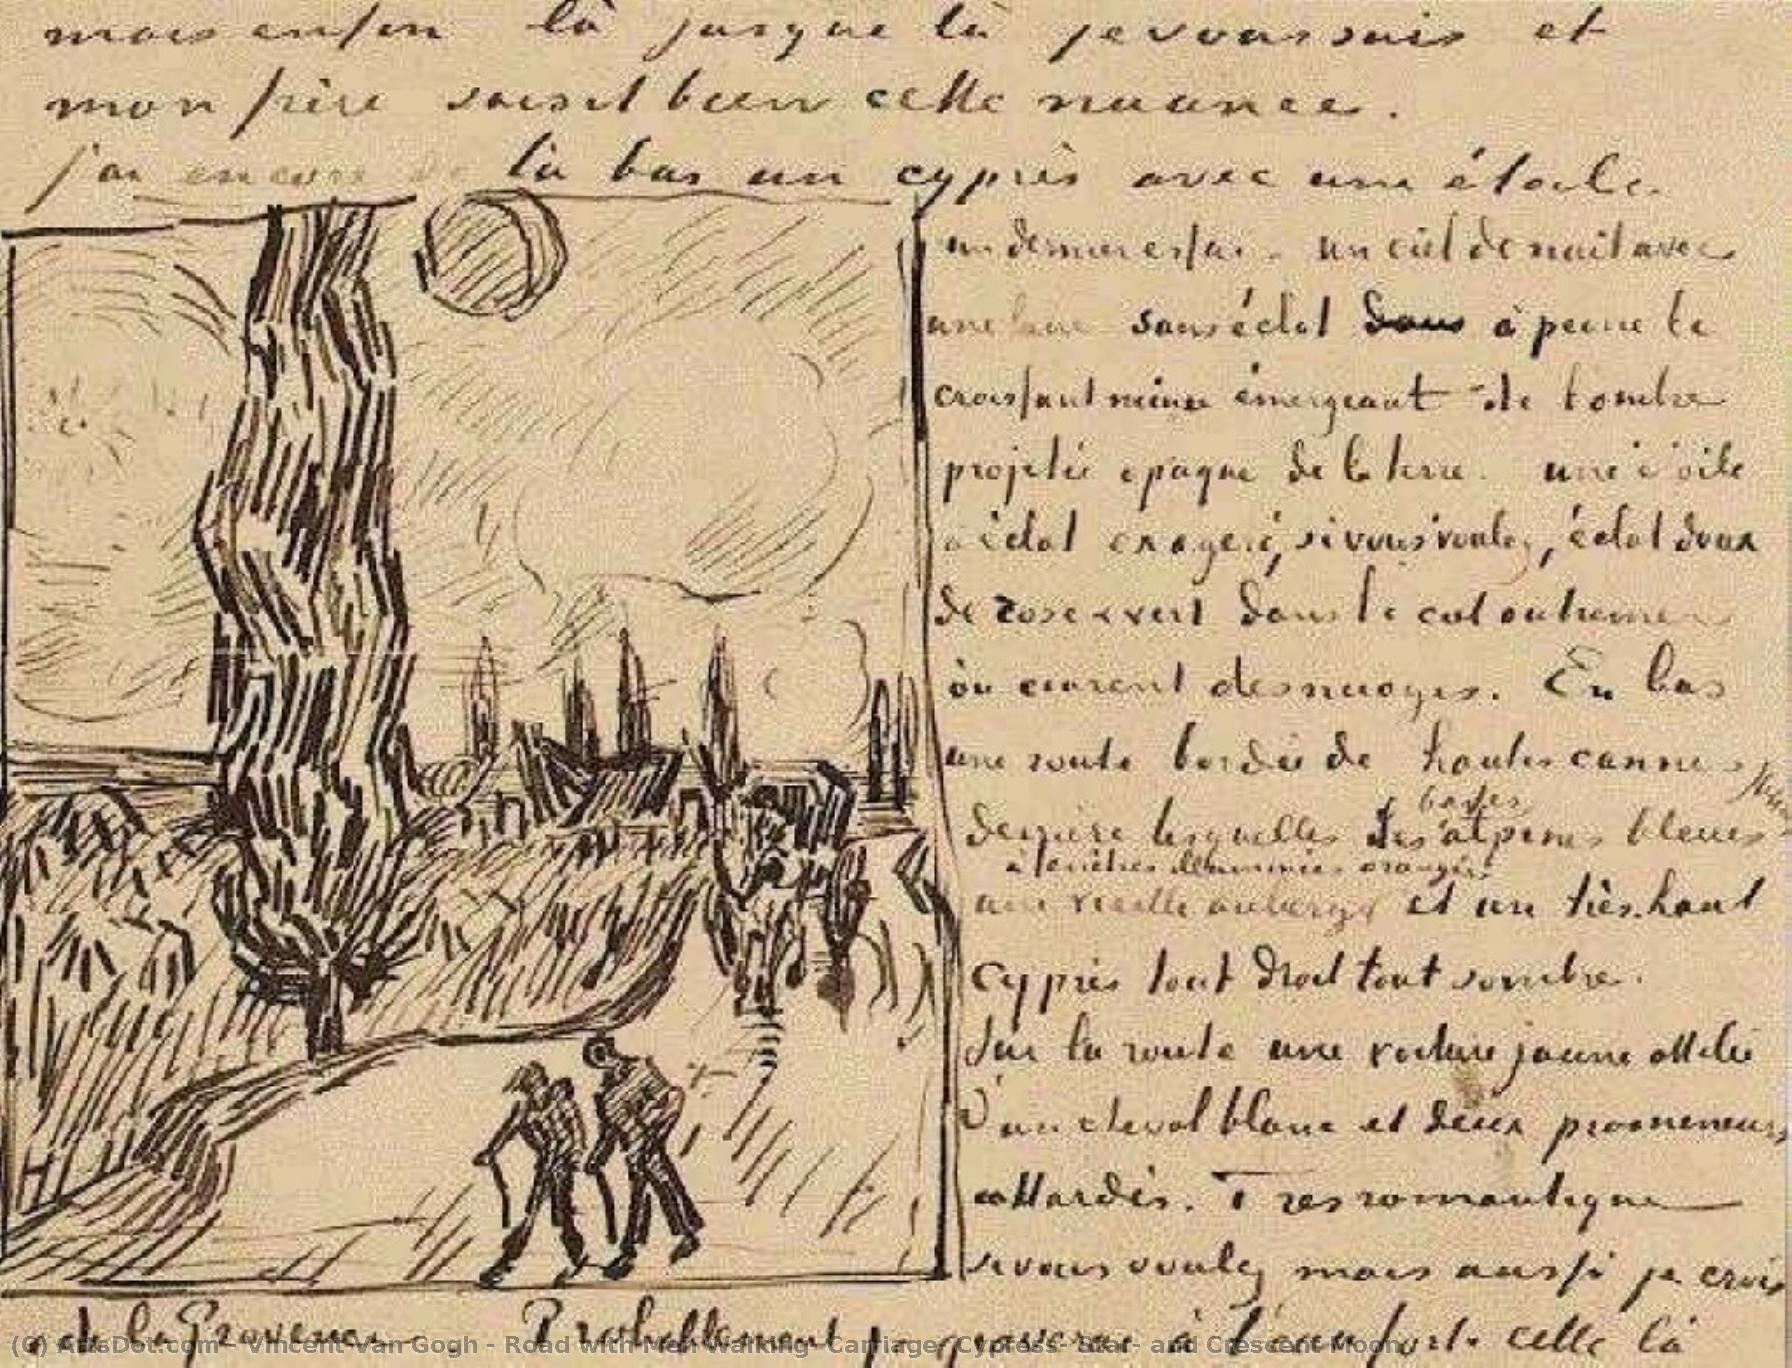 mais enfin là jusque là je vous suis et
mon frère saisit bien cette nuance.
j'ai encore de là bas un cyprès avec une étoile
un dernier essai – un ciel de nuit avec
une lune sans éclat dans à peine le
croissant mince émergeant de l'ombre
projetée opaque de la terre. une étoile
à éclat exagéré, si vous voulez, éclat doux
de rose & vert dans le ciel outremer
où courent des nuages. En bas
une route bordée de hautes cannes
derrière lesquelles les basses alpines bleues
à fenêtres illuminées orangées
une vieille auberge et un très haut
cyprès tout droit tout sombre.
Sur la route une voiture jaune attelée
d'un cheval blanc et deux promeneurs
attardés. Très romantique
si vous voulez mais aussi je crois
de la Provence – Probablement je graverai à l'eau forte celle là
(C) ArtsDot.com - Vincent Van Gogh - Road with Men Walking- Carriage- Cypress- Star- and Crescent Moon